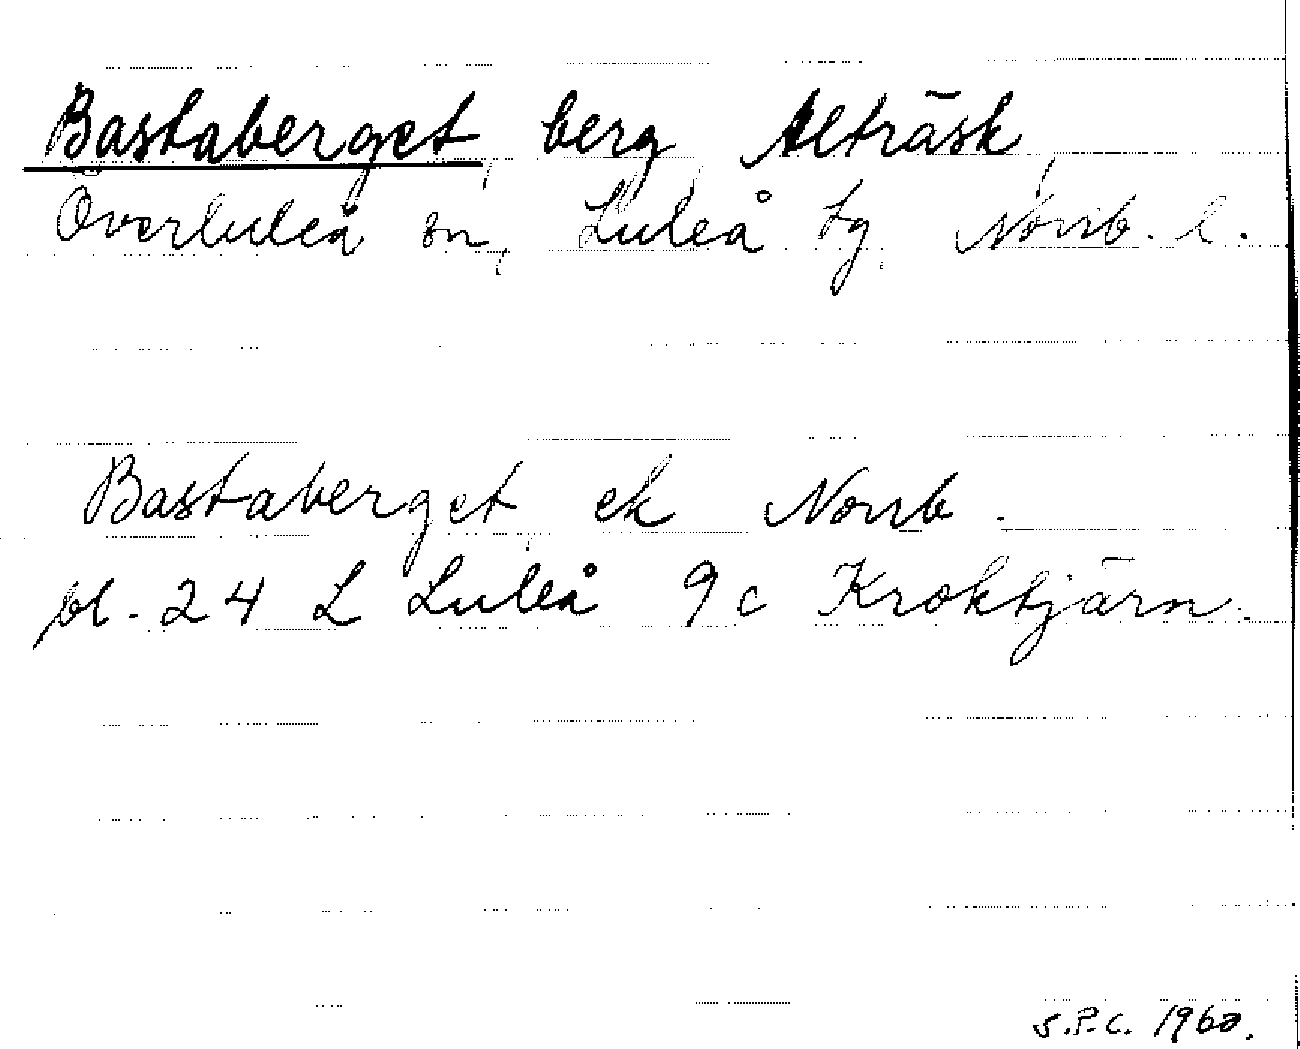 Bastaberget, berg, Alträsk,
Överluleå sn, Luleå tg, Norrb. l.
Bastaberget ek Norrb.
bl. 24 L Luleå 9c Kroktjärn.
S.P.C. 1960.